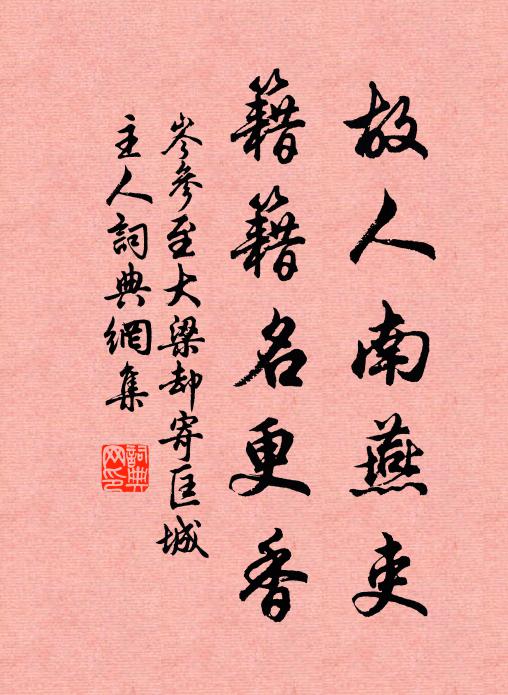 故人南燕吏
籍籍名更香
岑參至大梁却寄匡城
主人詞典網集
詞典网印